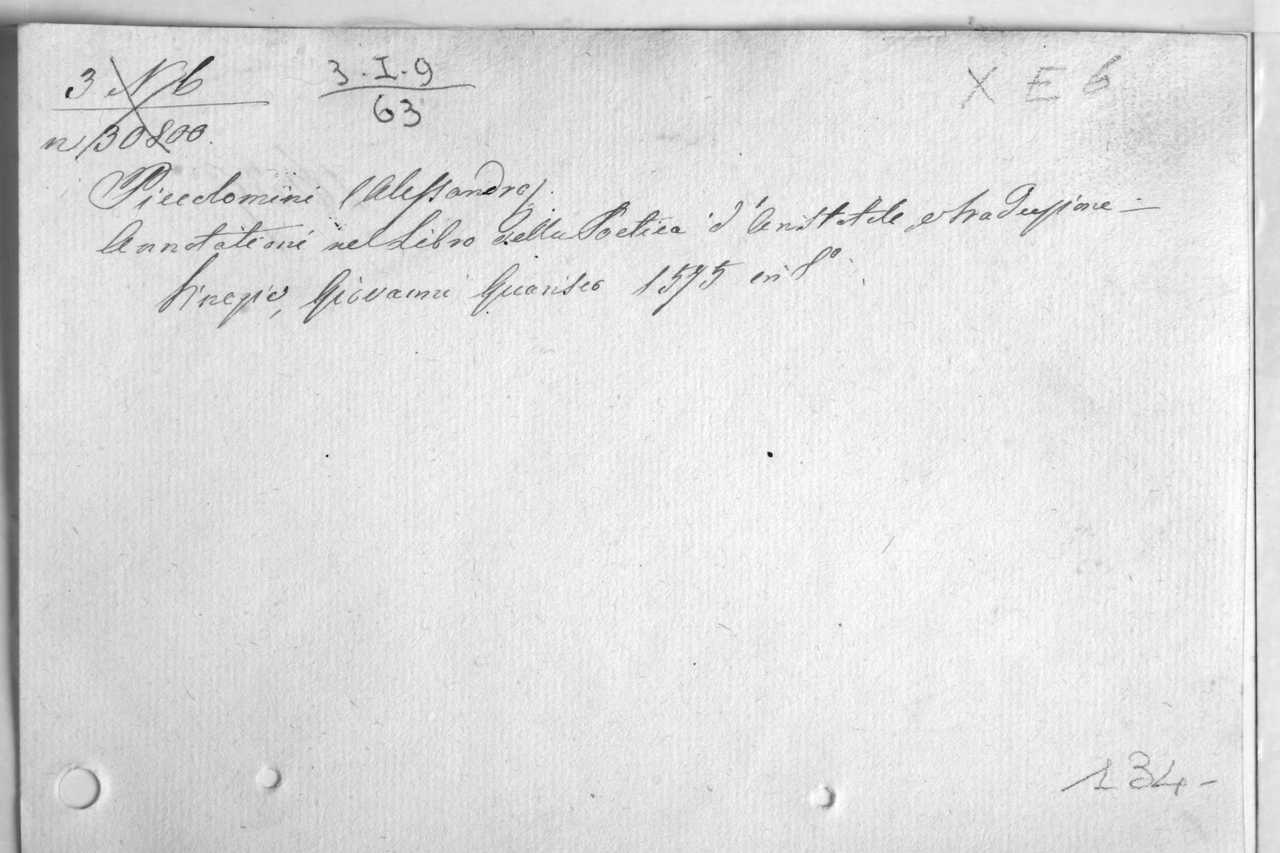 3 N b
n 30800.
3.I.9
63
X E 6
Piccolomini (Alessandro).
Annotationi nel Libro della Poetica d'Aristotele, e traduzione –
Vinegia, Giovanni Guarisco 1575 in 8º.
134-